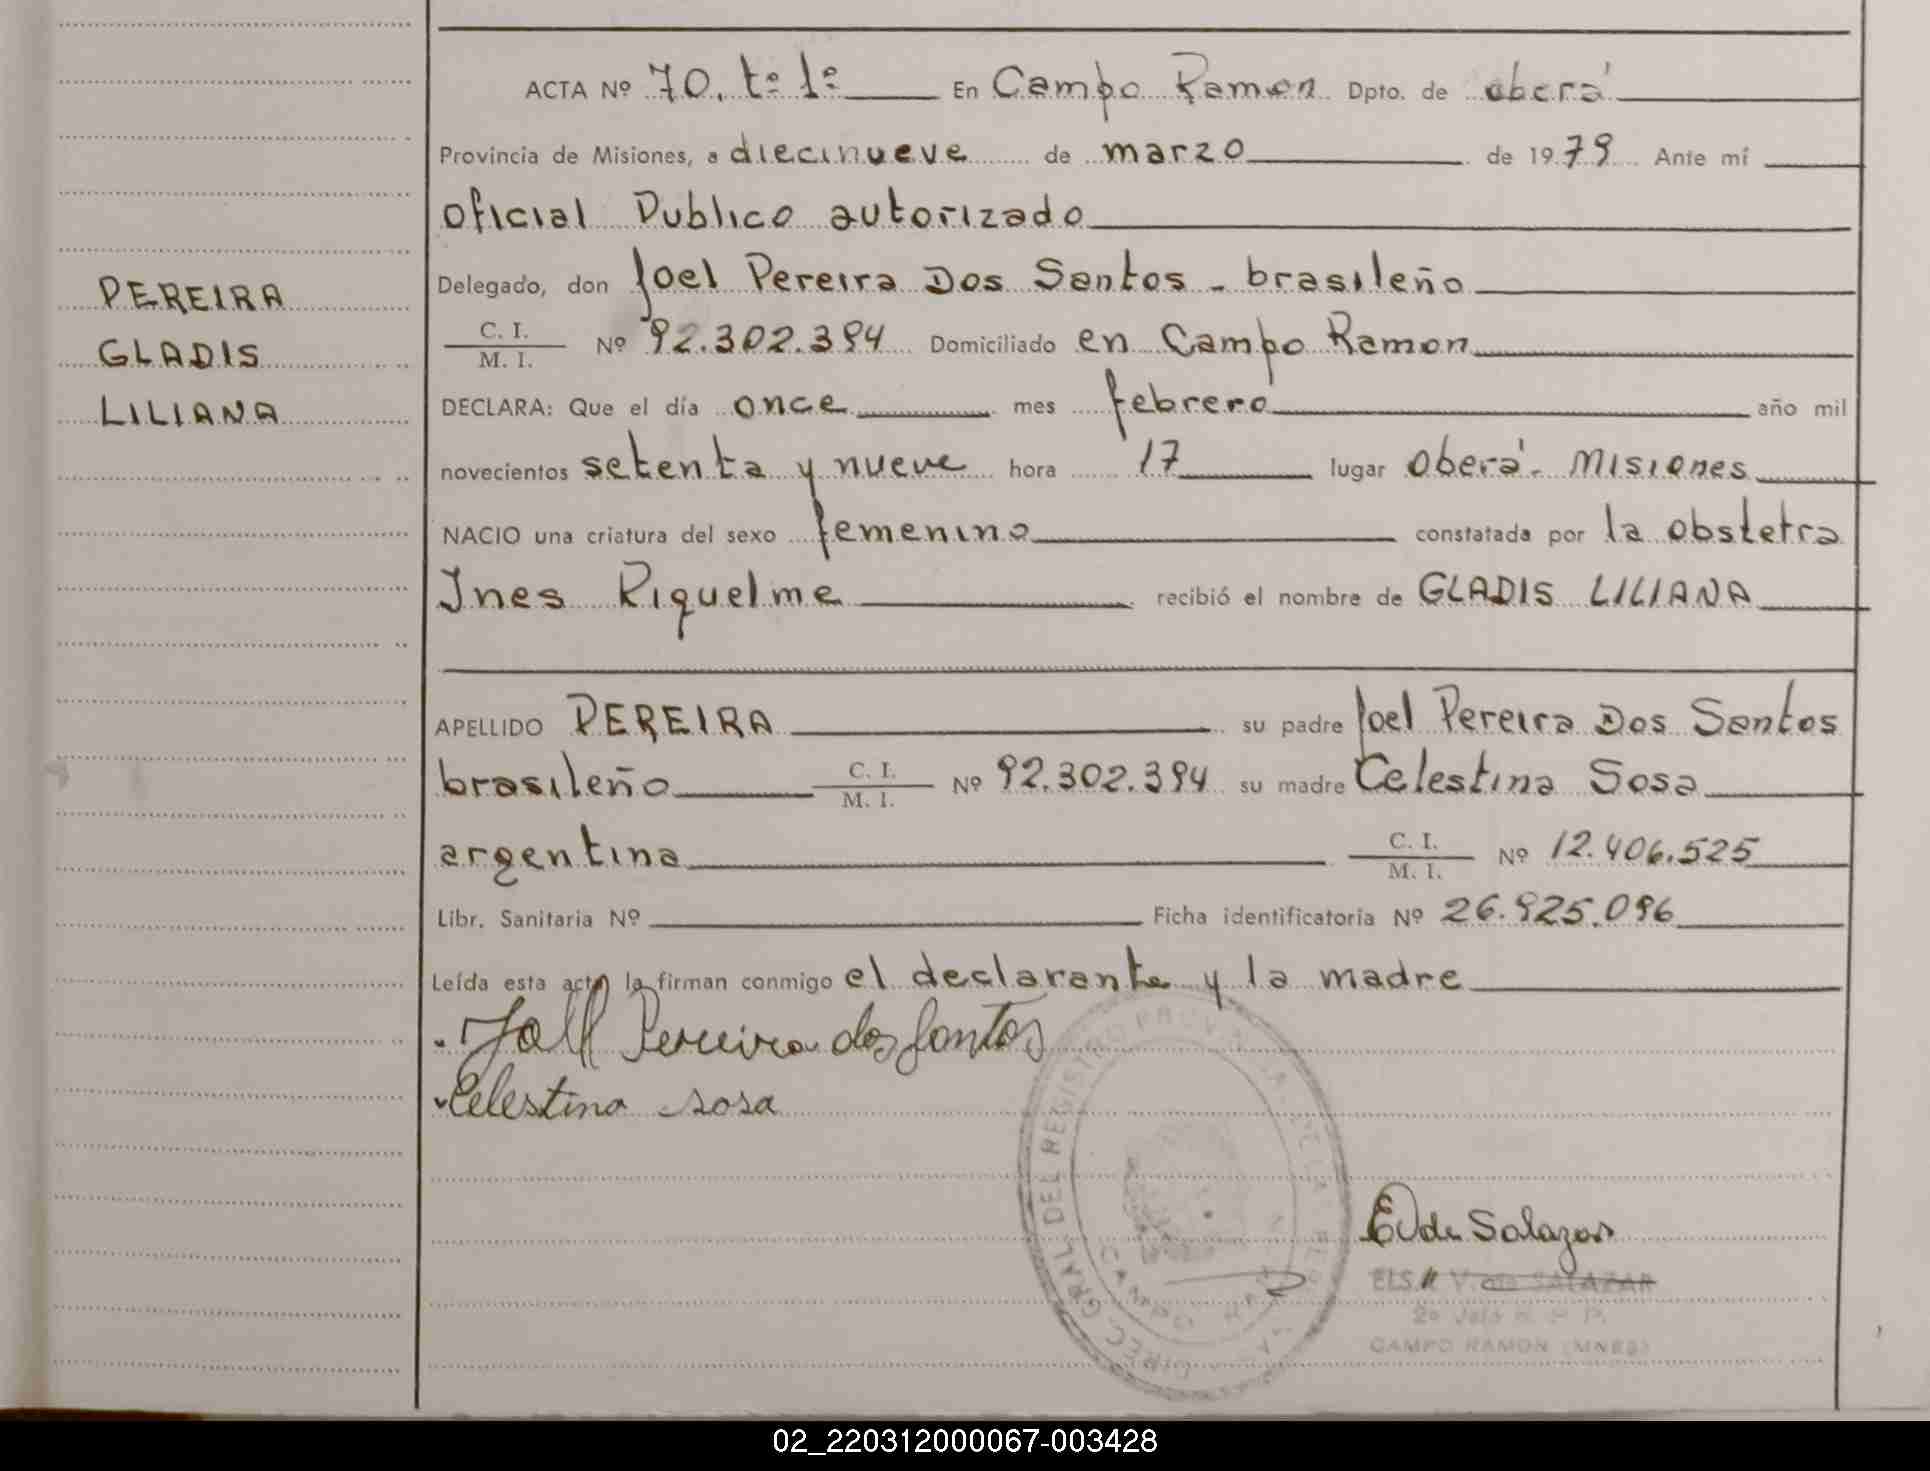 ACTA Nº 70. tº 1º En Campo Ramon Dpto. de oberá
Provincia de Misiones, a diecinueve de marzo de 1979 Ante mí
oficial Publico autorizado
Delegado, don Joel Pereira Dos Santos - brasileño
C. I.
M. I.
Nº 92.302.394 Domiciliado en Campo Ramon
DECLARA: Que el día once mes febrero año mil
novecientos setenta y nueve hora 17 lugar Oberá - Misiones
NACIO una criatura del sexo femenino constatada por la obstetra
Ines Riquelme recibió el nombre de GLADIS LILIANA
APELLIDO PEREIRA su padre Joel Pereira Dos Santos
brasileño C. I. M. I. Nº 92.302.394 su madre Celestina Sosa
argentina C. I. M. I. Nº 12.406.525
Libr. Sanitaria Nº Ficha identificatoria Nº 26.925.096
Leída esta acta la firman conmigo el declarante y la madre
PEREIRA
GLADIS
LILIANA
Joel Pereira dos Santos
Celestina sosa
DIREC. GRAL. DEL REGISTRO PROVINCIAL DE LAS
CAMPO RAMON
E V de Salazar
ELSA V. de SALAZAR
CAMPO RAMON (MNES)
02_220312000067-003428